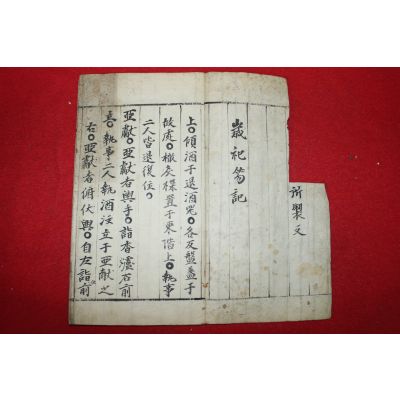 所製文
歲祀笏記
上○傾酒于退酒器○各反盤盞于
故處○樴炙楪置于東階上○執事
二人皆退復位○
亞獻○亞獻者與手○詣香爐石前
立○執事二人執酒注立于亞獻之
右○亞獻者俯伏興○自左詣前